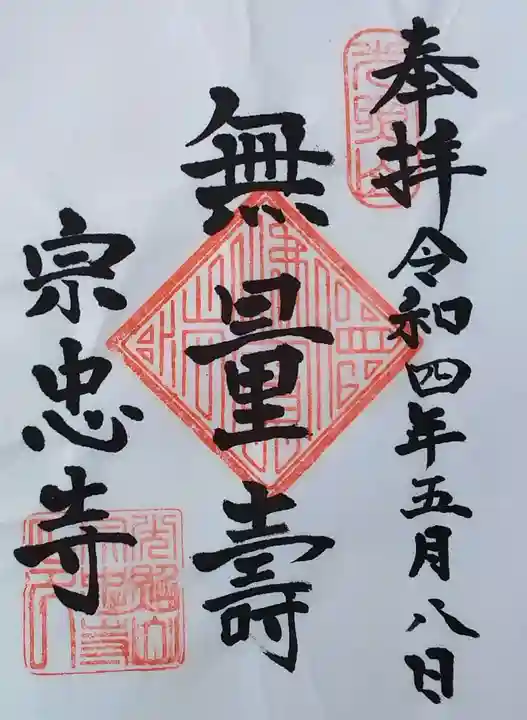 奉拝
令和四年五月八日
無量壽
宗忠寺